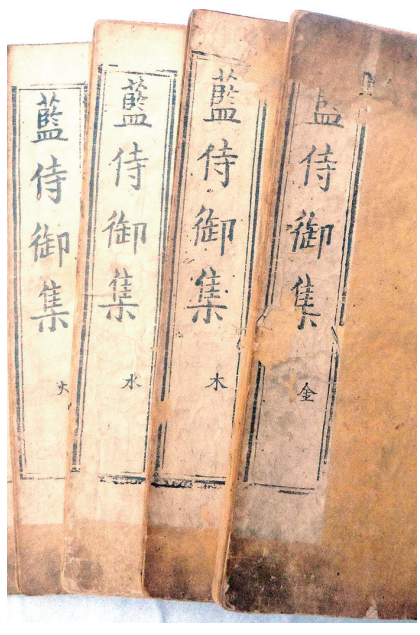 藍侍御集
金
藍侍御集
木
藍侍御集
水
藍侍御集
火